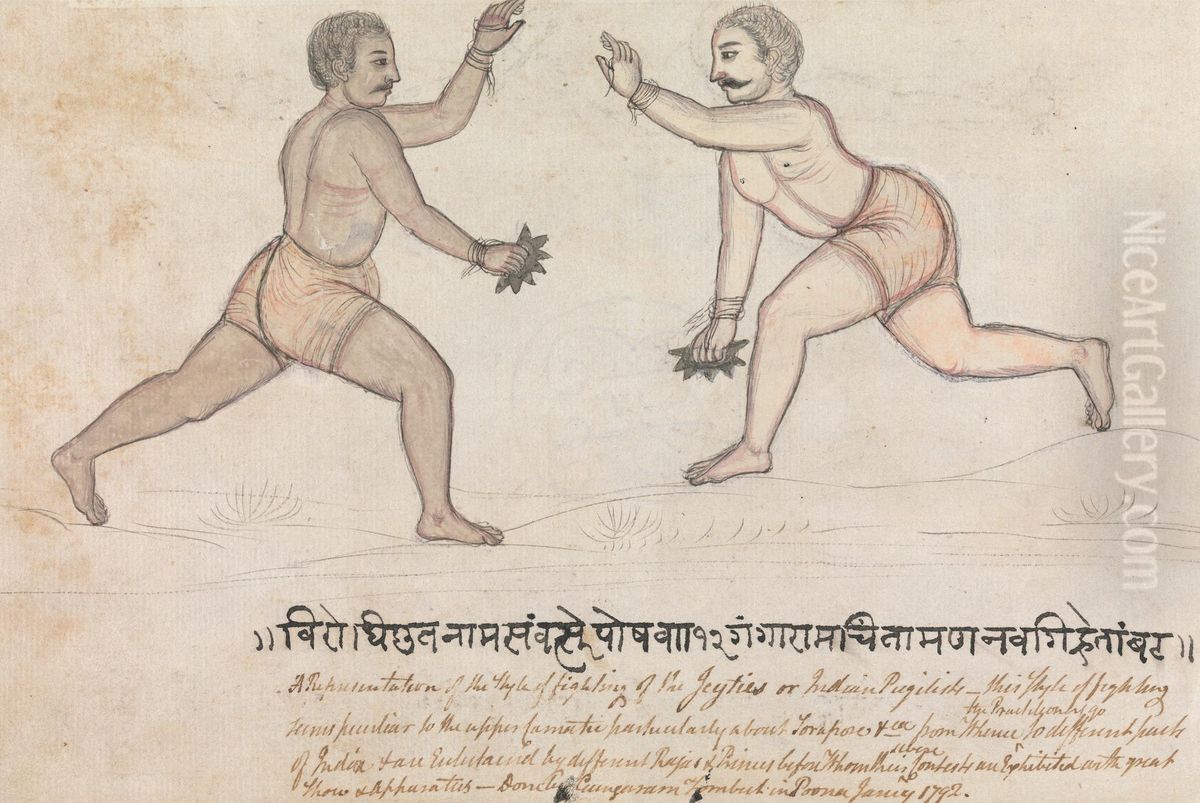 ॥ विरोधीकृत नाम संवत्सरे पोष व॥ १२ गंगाराम चिंतामण नवगिरे तांबट ॥
A Representation of the Style of fighting of the Jeyties or Indian Pugilists – this Style of fighting
seems peculiar to the upper Carnatic particularly about Torapore &ca from Whence the Practitioners go to different parts
of India & are Entertain'd by different Rajas & Princes before Whom these Contests are Exhibited with great
Show & Apparatus – Done by Gungaram Tombut in Poona Jany 1792.
NiceArtGallery.com